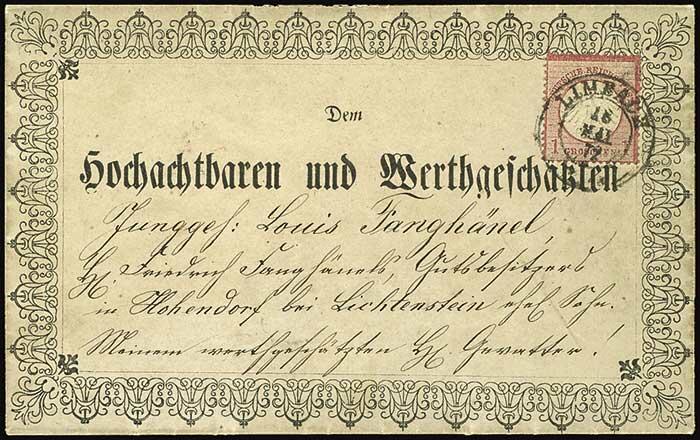 DEUTSCHE REICHS
LIMBACH
16
MAI
72
1 GROSCHEN
Dem
Hochachtbaren und Werthgeschätzten
Junggeſ: Louis Fanghänel,
H. Friedrich Fanghänels, Gutsbesitzers
in Hohendorf bei Lichtenstein ehel. Sohn.
Meinem werthgeschätzten H. Gevatter!